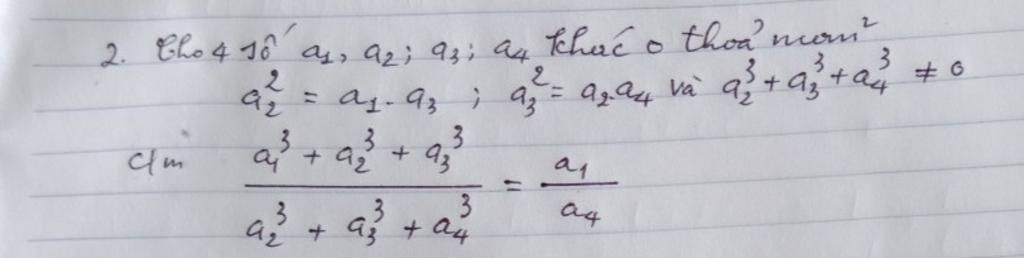 2. Cho 4 số a₁, a₂; a₃; a₄ khác 0 thoả mãn²
a₂² = a₁ . a₃ ; a₃² = a₂.a₄ và a₂³ + a₃³ + a₄³ ≠ 0
C/m (a₁³ + a₂³ + a₃³)/(a₂³ + a₃³ + a₄³) = a₁/a₄